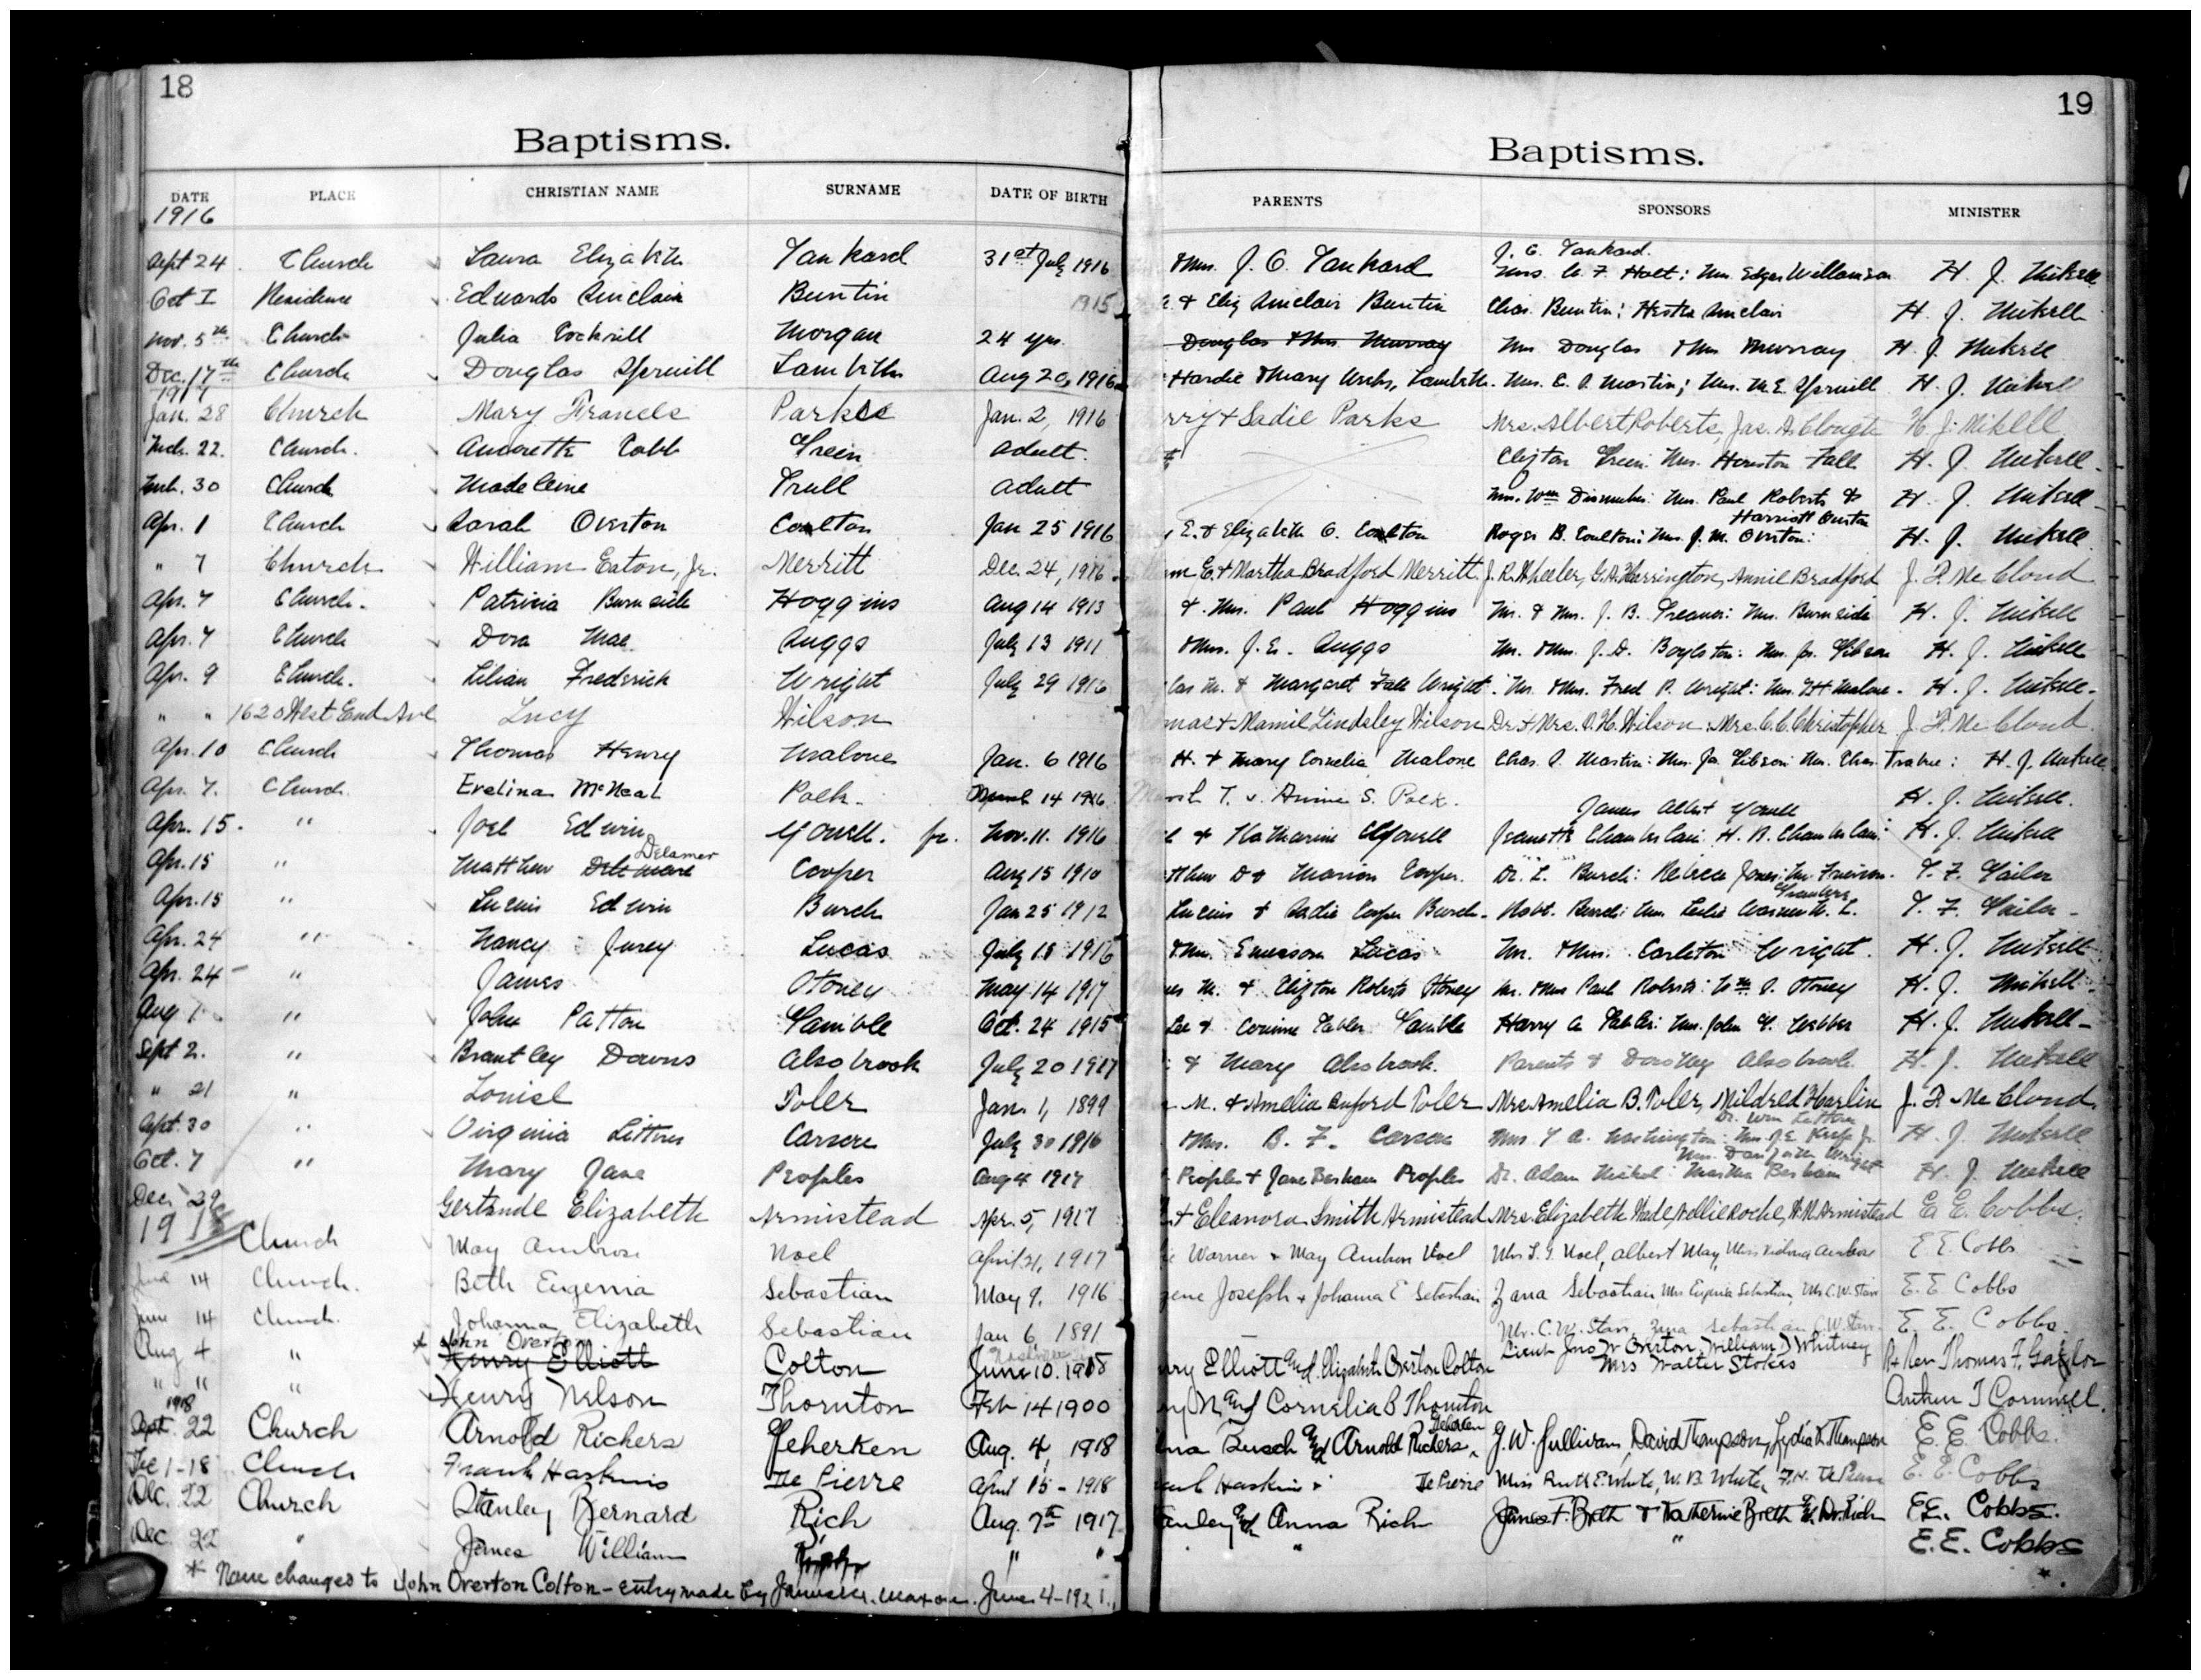 18
Baptisms.
DATE PLACE CHRISTIAN NAME SURNAME DATE OF BIRTH
1916
Sept 24 Church Laura Elizabeth Tankard 31st July 1916
Oct 1 Residence Edwards Sinclair Buntin 1915
Nov. 5th Church Julia Cockrill Morgan 24 yrs.
Dec. 17th Church Douglas Spruill Lambeth Aug 20, 1916
1917
Jan. 28 Church Mary Frances Parks Jan. 2, 1916
Mch. 22. Church. Cobb Green adult.
Mch. 30 Church Madeleine Trull adult
Apr. 1 Church Sarah Overton Coulton Jan 25 1916
" 7 Church William Eaton, Jr. Merritt Dec. 24, 1916
Apr. 7 Church. Patricia Burnside Hoggins Aug 14 1913
Apr. 7 Church Dora Mae Suggs July 13 1911
Apr. 9 Church. Lilian Frederick Wright July 29 1916
" " 1620 West End Ave Lucy Wilson
Apr. 10 Church Thomas Henry Malone Jan. 6 1916
Apr. 7. Church Evelina McNeal Polk. March 14 1916
Apr. 15. " Joel Edwin Yowell. Jr. Nov. 11. 1916
Delamer
Apr. 15 " Matthew Cooper Aug 15 1910
Apr. 15 " Lucius Edwin Burch Jan 25 1912
Apr. 24 " Nancy Jurey Lucas July 18 1916
Apr. 24 " James Stoney May 14 1917
Aug 1 " John Patton Gamble Oct. 24 1915
Sept 2. " Brantley Downs Alsobrook July 20 1917
" 21 " Louise Toler Jan. 1, 1899
Sept. 30 " Virginia Carson July 30 1916
Oct. 7 " Mary Jane Peoples Aug 4 1917
Dec. 29 Gertrude Elizabeth Armistead Apr. 5, 1917
1918
Church May Ambrose Noel April 21, 1917
June 14 Church. Beth Eugenia Sebastian May 9, 1916
June 14 Church. Johanna Elizabeth Sebastian Jan 6, 1891
* John Overton
Aug 4 " Henry Elliott Colton June 10. 1918
" " " Henry Nelson Thornton Feb 14 1900
1918
Sept. 22 Church Arnold Richers Jeherken Aug. 4, 1918
Dec 1-18 Church Frank Haskins De Pierre April 15 - 1918
Dec. 22 Church Stanley Bernard Rich Aug. 7th 1917
Dec. 22 " James William Rich " "
* Name changed to John Overton Colton - entry made by June 4-1921.
19
Baptisms.
PARENTS SPONSORS MINISTER
J. C. Tankard.
& Mrs. J. C. Tankard Mrs. A. F. Holt; Mrs. Edgar Williamson H. J. Mikell
& Eliz Sinclair Buntin Chas. Buntin; Hester Sinclair H. J. Mikell
Douglas & Mrs. Murray Mrs Douglas & Mrs Murray H. J. Mikell
Hardie & Mary Lambeth. Mrs. E. S. Martin; Mrs. M. E. Spruill H. J. Mikell
rry & Sadie Parks Mrs. Albert Roberts, Jas. A. Clough H. J. Mikell
Clifton Green Mrs. Houston Fall H. J. Mikell
Mrs. Wm Dismukes: Mrs. Paul Roberts & H. J. Mikell
Harriott Overton
E. & Elizabeth O. Coulton Roger B. Coulton: Mrs. J. M. Overton: H. J. Mikell
am E. & Martha Bradford Merritt. J. R. Wheeler, G. A. Herrington, Annie Bradford J. F. McCloud
& Mrs. Paul Hoggins Mr. & Mrs. J. B. Treanor: Mrs. Burnside H. J. Mikell
& Mrs. J. E. Suggs Mr. & Mrs. J. D. Boylston: Mrs. Jas. Gibson H. J. Mikell
las M. & Margaret Fall Wright. Mr. & Mrs. Fred P. Wright: Mrs. T H Malone. H. J. Mikell
mas & Mamie Lindsley Wilson Dr. & Mrs. S. H. Wilson. Mrs. C. C. Christopher J. F. McCloud.
H. & Mary Cornelia Malone Chas. S. Martin: Mrs. Jas. Gibson: Mrs. Chas. Trabue: H. J. Mikell
T. & Annie S. Polk. H. J. Mikell.
James Albert Yowell
& Katharine Yowell Jeanette Chamberlain H. D. Chamberlain: H. J. Mikell
tthew D & Marion Cooper. Dr. L. Burch: Rebecca Jones: Mr. Frierson. T. F. Gailor
Lucius & Sadie Cooper Burch. Robt. Burch: Mrs. Leslie Warner T. F. Gailor
& Mrs. Emerson Lucas Mr. & Mrs. Carleton Wright. H. J. Mikell
es M. & Clifton Roberts Stoney Mr. & Mrs Paul Roberts: Wm. S. Stoney H. J. Mikell
Lee & Corinne Gamble Harry A. Mrs. John Y. Webber H. J. Mikell
& Mary Alsobrook. Parents & Dorothy Alsobrook. H. J. Mikell
M. & Amelia Buford Toler Mrs Amelia B. Toler, Mildred Harlin J. F. McCloud.
& Mrs. B. F. Carson Mrs T A. Washington: H. J. Mikell
Peoples & Jane Basham Peoples Dr. Adam Nichol: Martha Basham H. J. Mikell
& Eleanora Smith Armistead Mrs. Elizabeth Wade, Nellie Roche, Armistead E. E. Cobbs.
Warner & May Ambrose Noel Mrs L. Y. Noel, Albert May, Miss Ambrose E E Cobbs
gene Joseph & Johanna E Sebastian Zana Sebastian, Mrs Eugenia Sebastian, Mr C. W. Starr E. E Cobbs
Mr. C. W. Starr, Zana Sebastian C. W. Starr E. E. Cobbs.
Lieut Jno W Overton, William D Whitney
nry Elliott and Elizabeth Overton Colton Mrs Walter Stokes Rt Rev Thomas F. Gailor
ry N and Cornelia B Thornton Arthur T Cornwell.
Jeherken
na Busch and Arnold Richers J. W. Sullivan, David Thompson, Lydia Thompson E. E. Cobbs.
Haskins & De Pierre Miss Ruth E White, W. B. White, F. H. De Pierre E. E. Cobbs
anley and Anna Rich James F. Breth & Katherine Breth Rich E E. Cobbs.
" " E. E. Cobbs